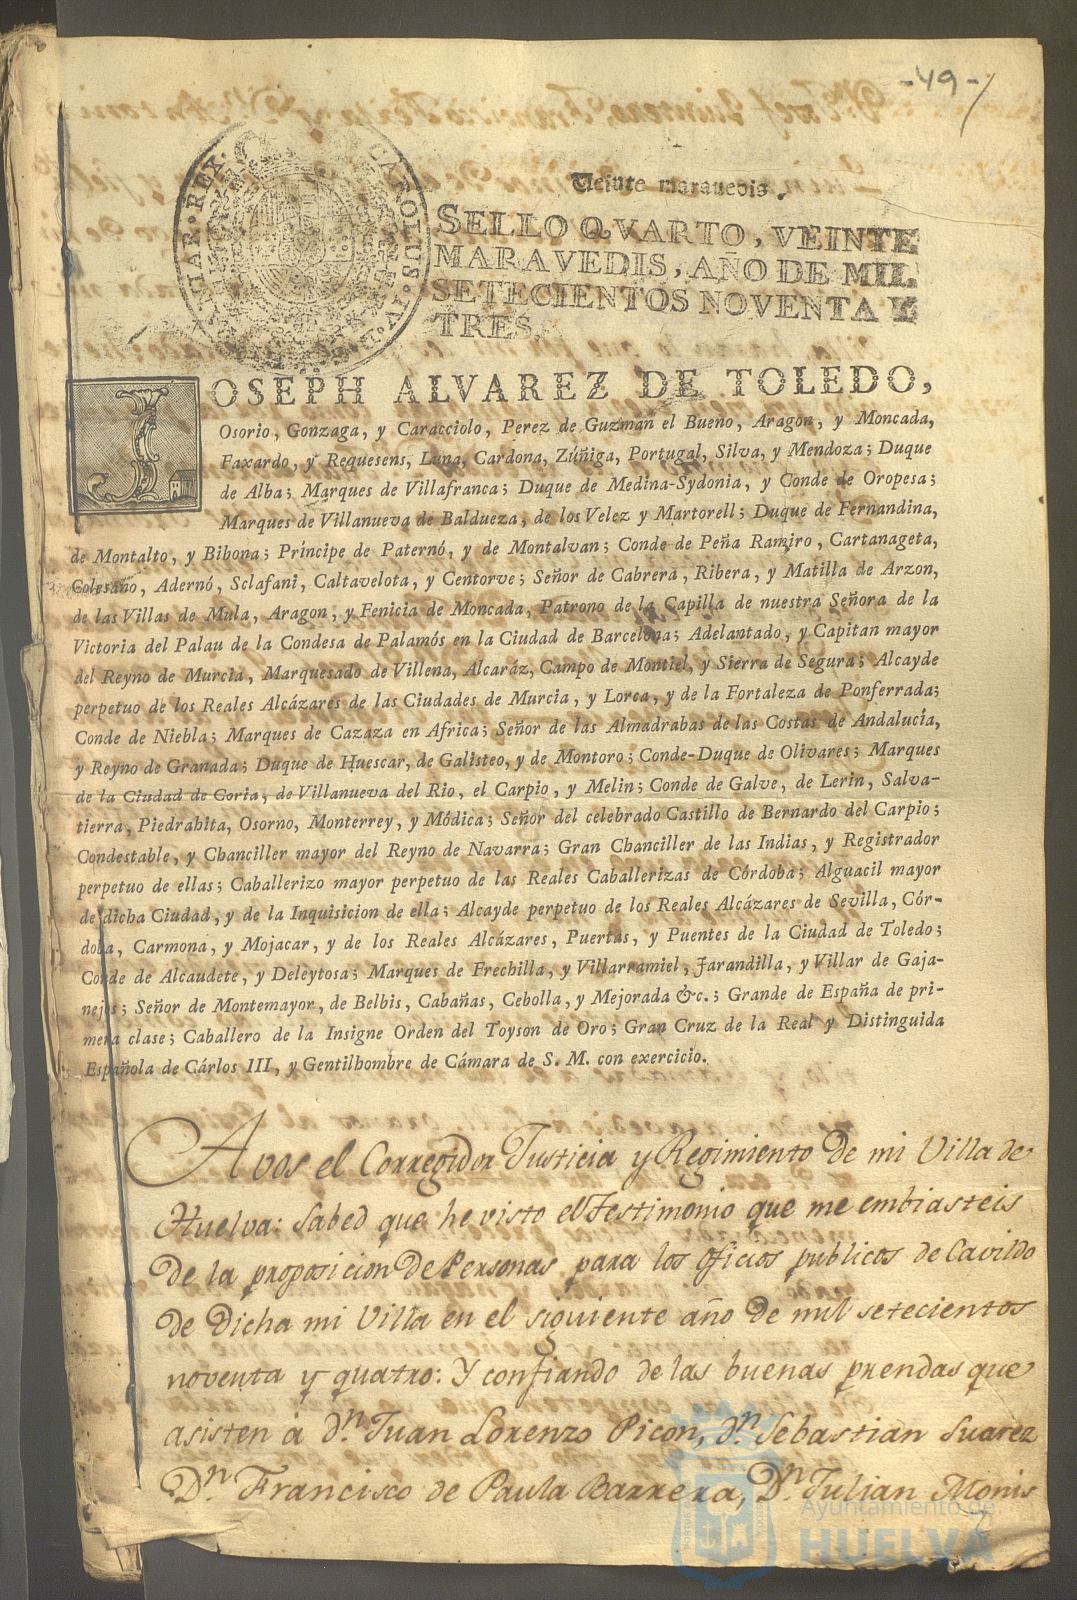 -49-
CAROLUS IV
HISPANIAR. REX.
Veinte maravedis.
SELLO QVARTO, VEINTE
MARAVEDIS, AÑO DE MIL
SETECIENTOS NOVENTA Y
TRES.
JOSEPH ALVAREZ DE TOLEDO,
Osorio, Gonzaga, y Caracciolo, Perez de Guzmán el Bueno, Aragon, y Moncada,
Faxardo, y Requesens, Luna, Cardona, Zúñiga, Portugal, Silva, y Mendoza; Duque
de Alba; Marques de Villafranca; Duque de Medina-Sydonia, y Conde de Oropesa;
Marques de Villanueva de Baldueza, de los Velez y Martorell; Duque de Fernandina,
de Montalto, y Bibona; Príncipe de Paternó, y de Montalvan; Conde de Peña Ramiro, Cartanageta,
Golesano, Adernó, Sclafani, Caltavelota, y Centorve; Señor de Cabrera, Ribera, y Matilla de Arzon,
de las Villas de Mula, Aragon, y Fenicia de Moncada, Patrono de la Capilla de nuestra Señora de la
Victoria del Palau de la Condesa de Palamós en la Ciudad de Barcelona; Adelantado, y Capitan mayor
del Reyno de Murcia, Marquesado de Villena, Alcaráz, Campo de Montiel, y Sierra de Segura; Alcayde
perpetuo de los Reales Alcázares de las Ciudades de Murcia, y Lorca, y de la Fortaleza de Ponferrada;
Conde de Niebla; Marques de Cazaza en Africa; Señor de las Almadrabas de las Costas de Andalucía,
y Reyno de Granada; Duque de Huescar, de Galisteo, y de Montoro; Conde-Duque de Olivares; Marques
de la Ciudad de Coria, de Villanueva del Rio, el Carpio, y Melin; Conde de Galve, de Lerin, Salva-
tierra, Piedrahita, Osorno, Monterrey, y Módica; Señor del celebrado Castillo de Bernardo del Carpio;
Condestable, y Chanciller mayor del Reyno de Navarra; Gran Chanciller de las Indias, y Registrador
perpetuo de ellas; Caballerizo mayor perpetuo de las Reales Caballerizas de Córdoba; Alguacil mayor
de dicha Ciudad, y de la Inquisicion de ella; Alcayde perpetuo de los Reales Alcázares de Sevilla, Cór-
doba, Carmona, y Mojacar, y de los Reales Alcázares, Puertas, y Puentes de la Ciudad de Toledo;
Conde de Alcaudete, y Deleytosa; Marques de Frechilla, y Villarramiel, Jarandilla, y Villar de Gaja-
nejos; Señor de Montemayor, de Belbis, Cabañas, Cebolla, y Mejorada &c.; Grande de España de pri-
mera clase; Caballero de la Insigne Orden del Toyson de Oro; Gran Cruz de la Real y Distinguida
Española de Cárlos III, y Gentilhombre de Cámara de S. M. con exercicio.
A vos el Corregidor Justicia y Regimiento de mi Villa de
Huelva: Sabed que he visto el Testimonio que me embiasteis
de la proposicion de Personas para los oficios publicos de Cavildo
de dicha mi Villa en el siguiente año de mil setecientos
noventa y quatro: Y confiando de las buenas prendas que
asisten á Dn. Juan Lorenzo Picon, Dn. Sebastian Suarez
Dn. Francisco de Paula Barrera, Dn. Julian Monis
Ayuntamiento de
HUELVA